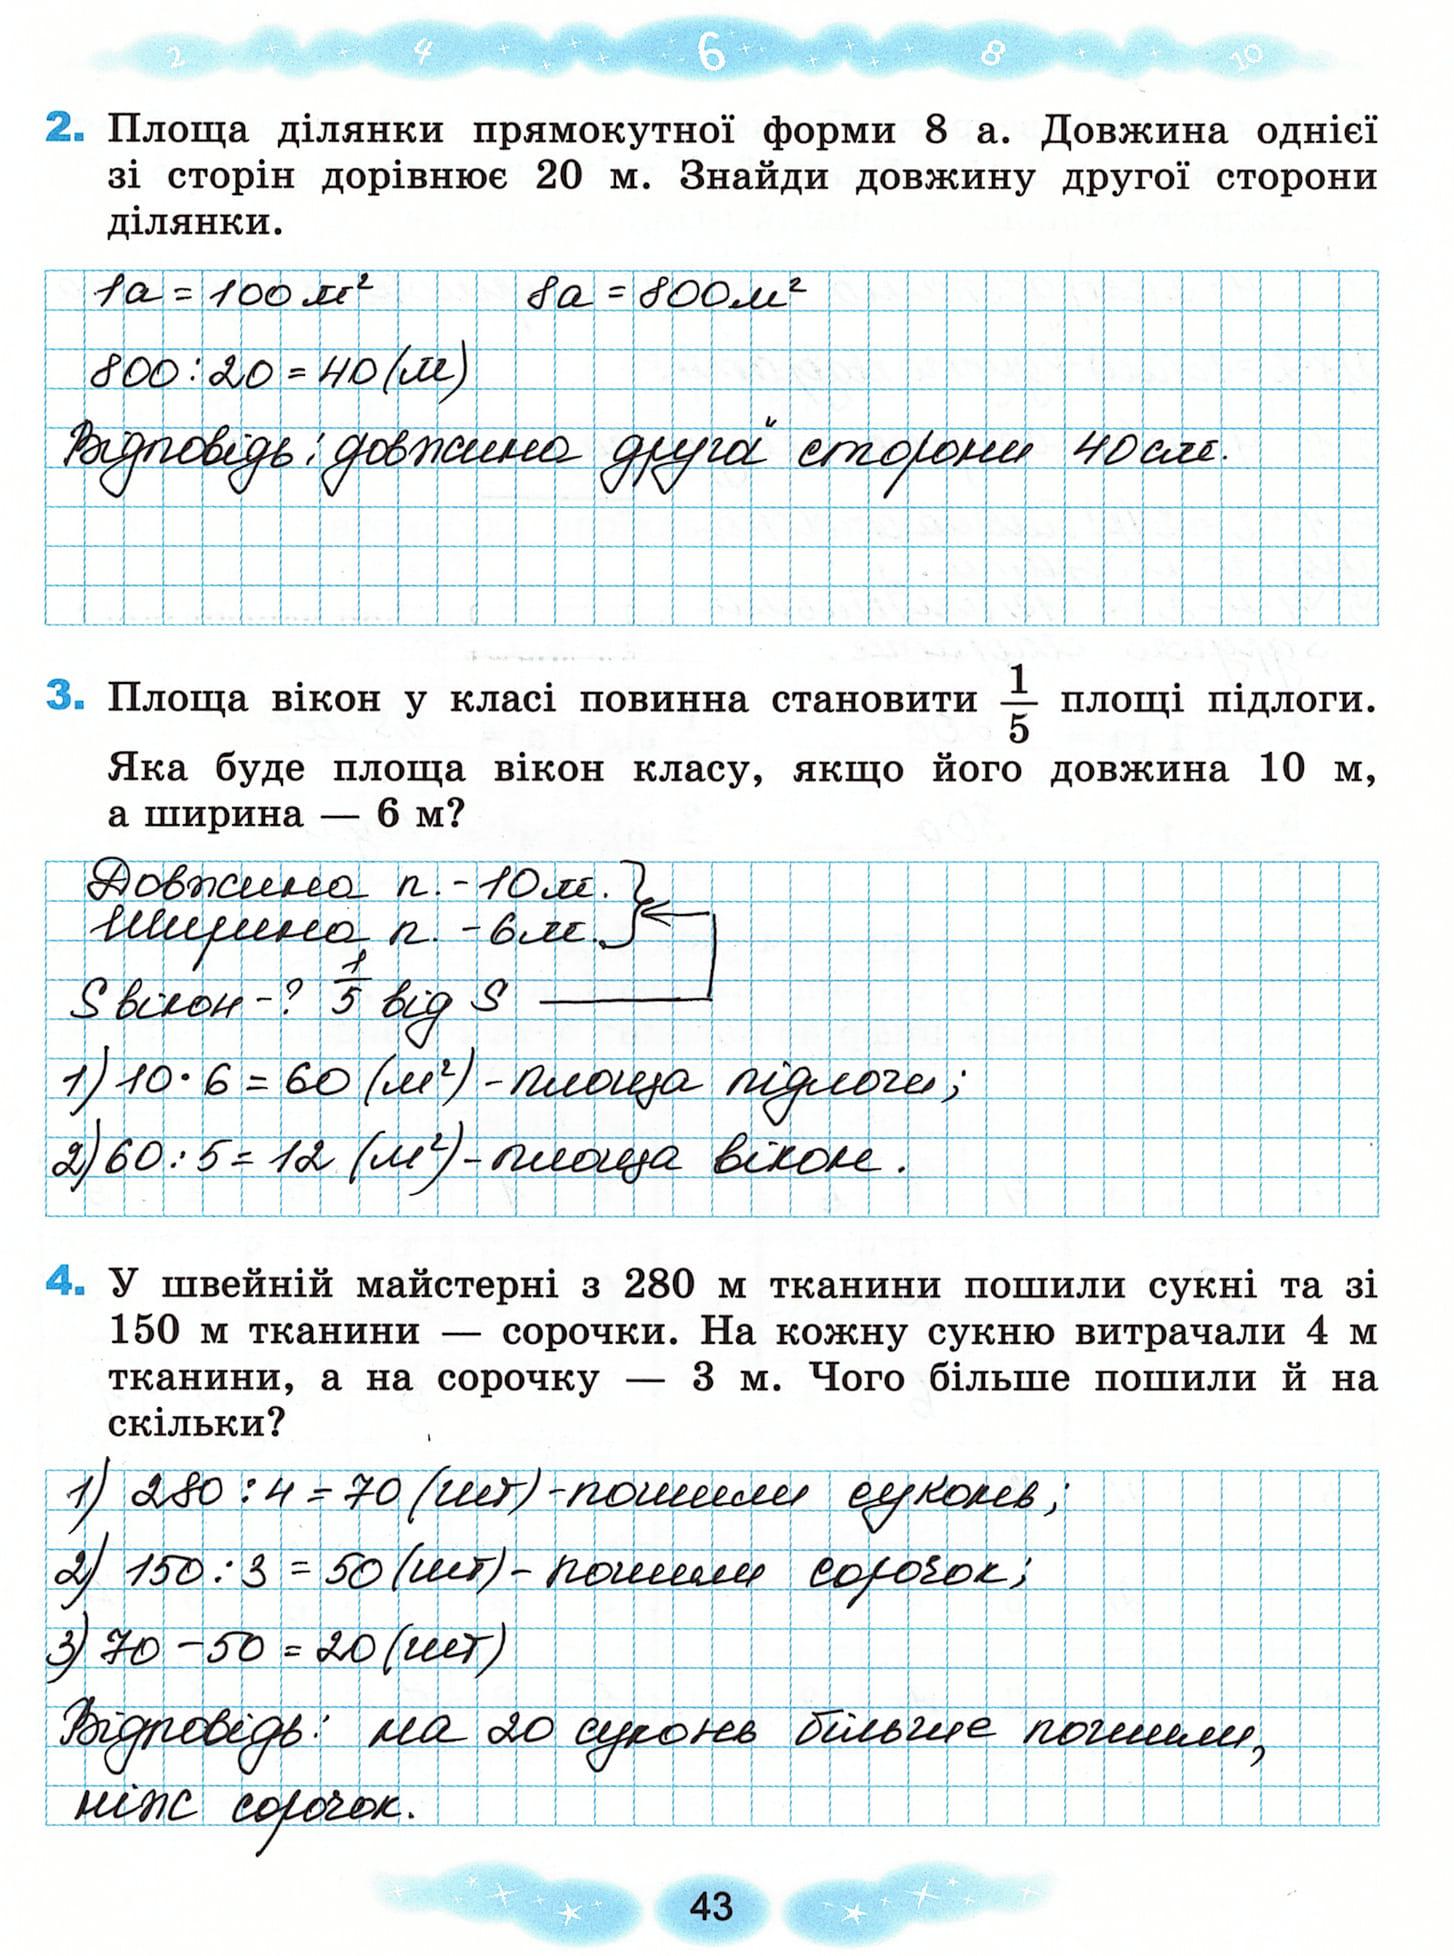 2 4 6 8 10
2. Площа ділянки прямокутної форми 8 а. Довжина однієї
зі сторін дорівнює 20 м. Знайди довжину другої сторони
ділянки.
1а = 100 м² 8а = 800м²
800 : 20 = 40 (м)
Відповідь: довжина другої сторони 40 см.
3. Площа вікон у класі повинна становити 1/5 площі підлоги.
Яка буде площа вікон класу, якщо його довжина 10 м,
а ширина — 6 м?
Довжина п. - 10 м.
Ширина п. - 6 м.
S вікон - ? 1/5 від S
1) 10 · 6 = 60 (м²) - площа підлоги;
2) 60 : 5 = 12 (м²) - площа вікон.
4. У швейній майстерні з 280 м тканини пошили сукні та зі
150 м тканини — сорочки. На кожну сукню витрачали 4 м
тканини, а на сорочку — 3 м. Чого більше пошили й на
скільки?
1) 280 : 4 = 70 (шт) - пошили суконь;
2) 150 : 3 = 50 (шт) - пошили сорочок;
3) 70 - 50 = 20 (шт)
Відповідь: на 20 суконь більше пошили,
ніж сорочок.
43